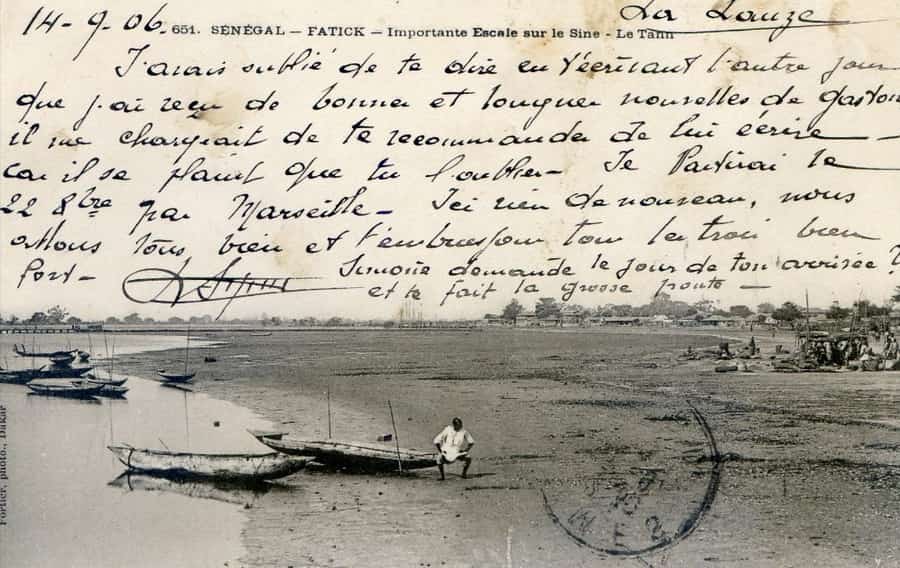 14-9-06. La Lauze
651. SÉNÉGAL — FATICK — Importante Escale sur le Sine - Le Tann
J'avais oublié de te dire en t'écrivant l'autre jour
que j'ai reçu de bonnes et longues nouvelles de gaston
il me chargeait de te recommander de lui écrire —
car il se plaint que tu l'oublies — Je Partirai le
22 8bre par Marseille — Ici rien de nouveau, nous
allons tous bien et t'embrassons tous les trois bien
fort —
Simone demande le jour de ton arrivée ?
et te fait la grosse —
Fortier, photo., Dakar